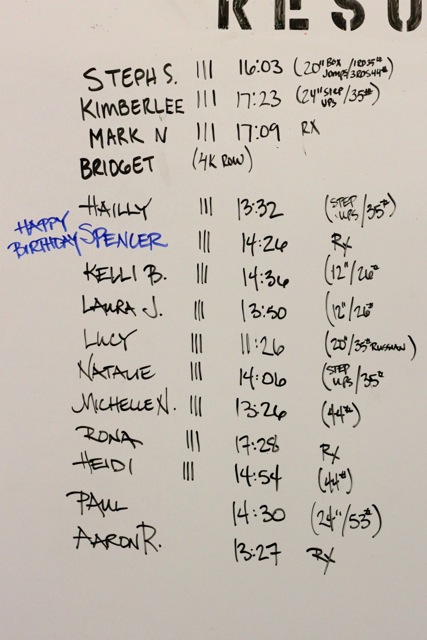 RESU
STEPH S. III 16:03 (20" BOX Jumps/1RD35# 3RDS44#)
KIMBERLEE III 17:23 (24" STEP UPS/35#)
MARK N III 17:09 RX
BRIDGET (4K ROW)
HAILLY III 13:32 (STEP UPS/35#)
HAPPY BIRTHDAY SPENCER III 14:26 Rx
KELLI B. III 14:36 (12"/26#)
LAURA J. III 13:50 (12"/26#)
LUCY III 11:26 (20"/35# RUSSIAN)
NATALIE III 14:06 (STEP UPS/35#)
MICHELLE V. III 13:26 (44#)
RONA III 17:28 Rx
HEIDI III 14:54 (44#)
PAUL 14:30 (24"/53#)
AARON R. 13:27 Rx